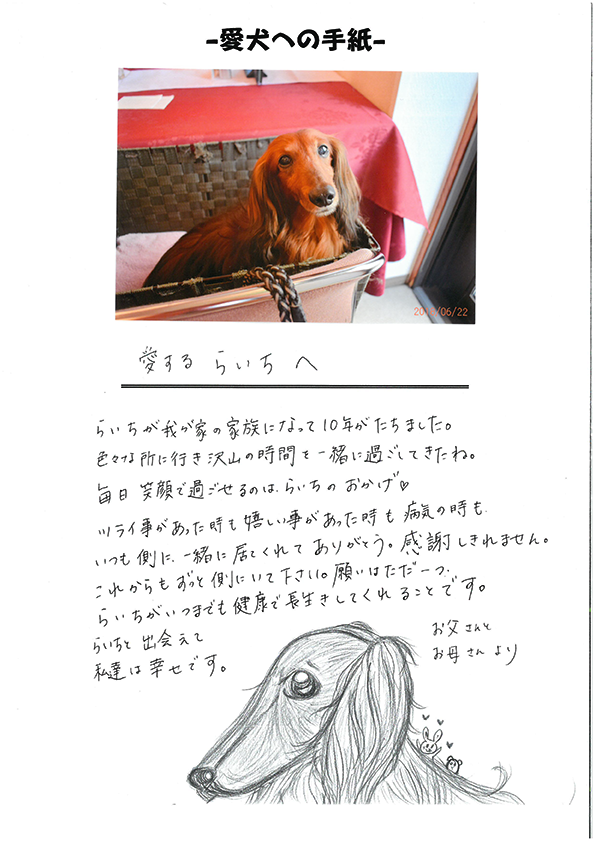 -愛犬への手紙-
愛する らいち へ
らいちが我が家の家族になって10年がたちました。
色々な所に行き沢山の時間を一緒に過ごしてきたね。
毎日 笑顔で過ごせるのは、らいちの おかげ♡
ツライ事があった時も嬉しい事があった時も 病気の時も、
いつも側に、一緒に居てくれて ありがとう。感謝しきれません。
これからも ずっと側にいて下さい。願いはただ一つ、
らいちがいつまでも健康で長生きしてくれることです。
らいちと 出会えて
私達は 幸せです。
お父さんと
お母さん より